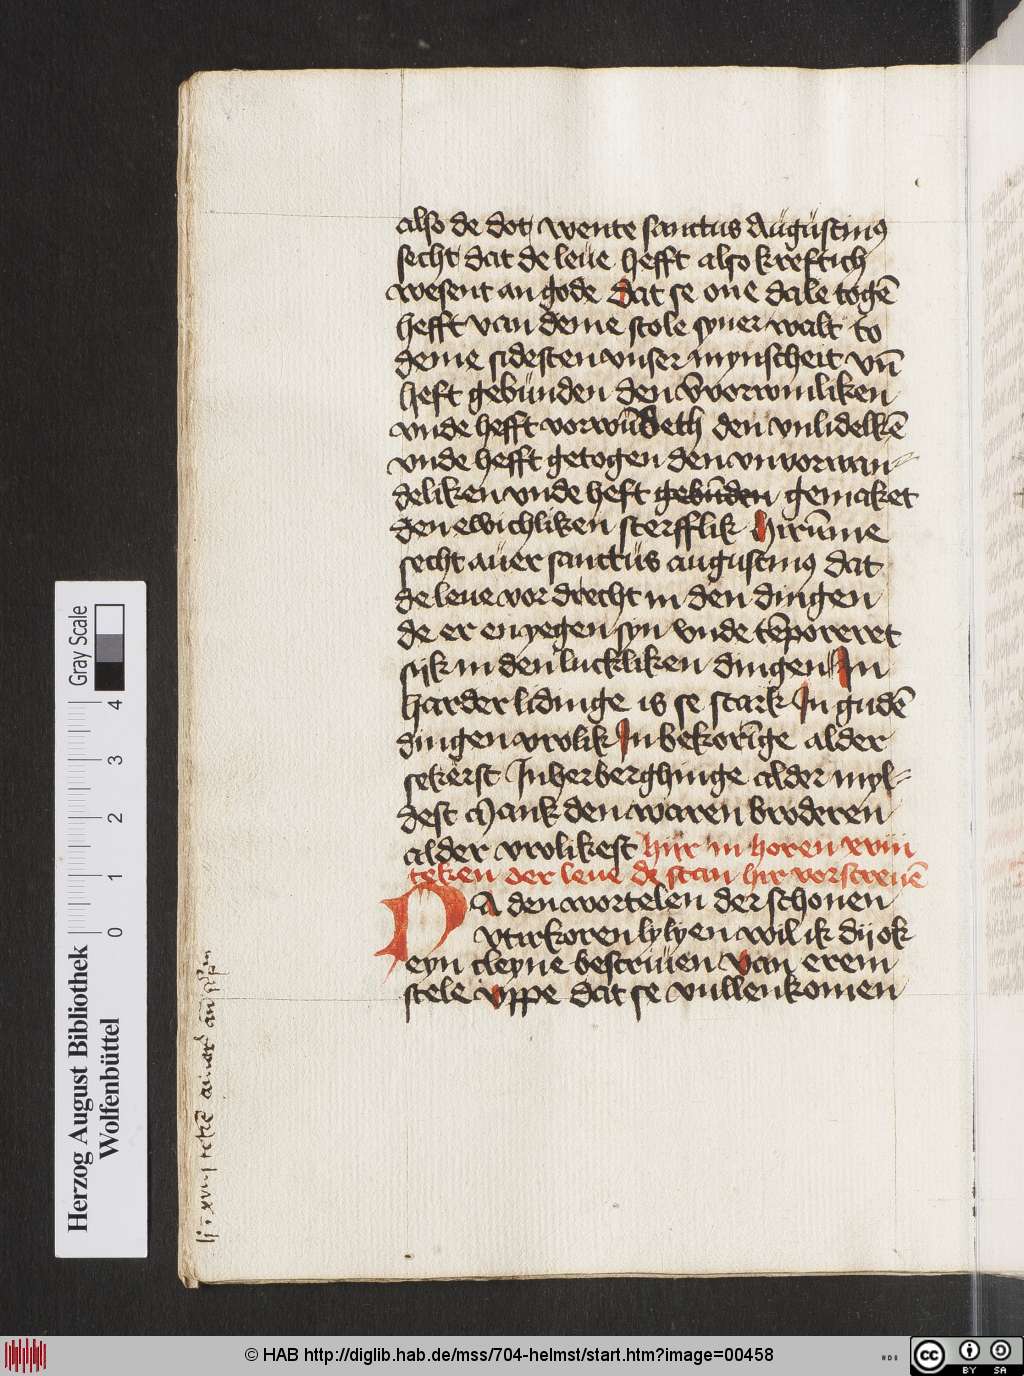 also de dot wente sanctus Augustinꝰ
secht dat de leue hefft also kreftich
wesent an gode dat se one dale togē
hefft van deme stole syner walt to
deme sidesten vnser mynscheit vn̄
heft gebunden den v̄vorwinliken
vnde hefft vorwūdeth den vnlidelkē
vnde hefft getogen den vnvorwan⸗
deliken vnde heft gebūden gemaket
den ewichliken sterfflik hirūme
secht auer sanctus augustinꝰ dat
de leue vordrecht in den dingen
de er enyegen syn vnde tēporeret
sijk in den luckliken dingen In
harder lidinge is se stark In gudē
dingen vrolik In bekorīge alder
sekerst In herberghinge alder myl⸗
dest Mank den waren broderen
alder vrolikest hiir in horen xviii
teken der leue de stan hir vorscreuē
DA den wortelen der schonen
vtirkoren lylyen wil ik dij ok
eyn cleyne bescriuen van erem
stele vppe dat se vullenkomen
Herzog August Bibliothek
Wolfenbüttel
0 1 2 3 4
Gray Scale
© HAB http://diglib.hab.de/mss/704-helmst/start.htm?image=00458
HAB
cc
BY SA